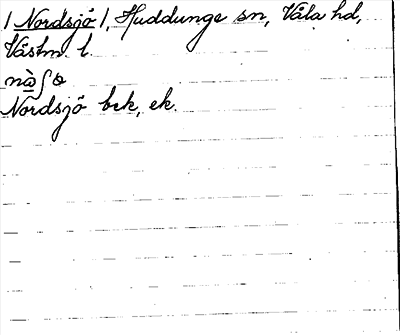 / Nordsjö /, Huddunge sn, Våla hd,
Västm l.
Nordsjö bek, ek.